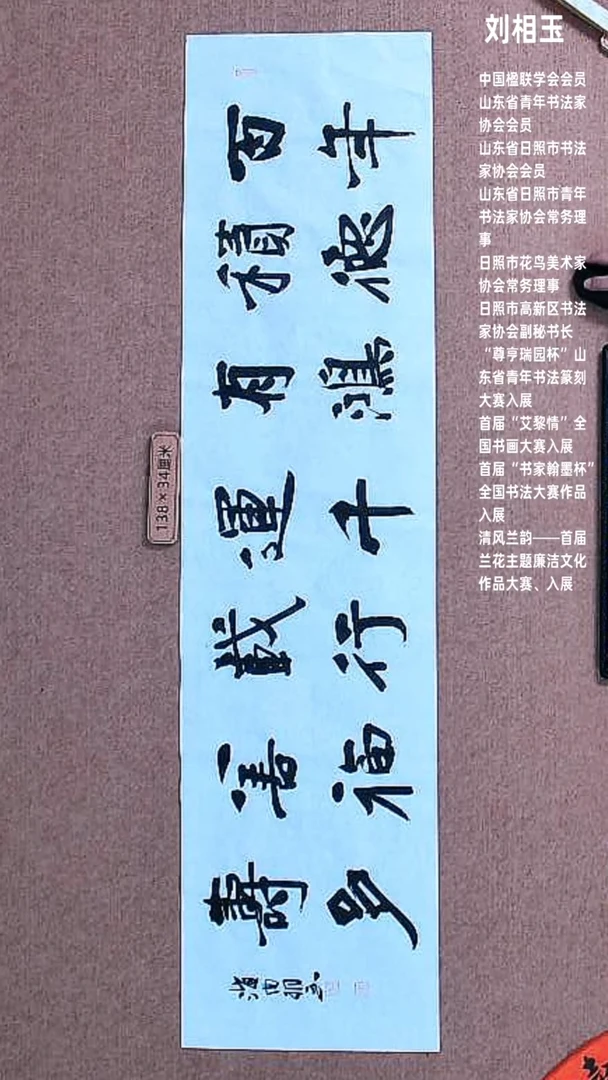 刘相玉
中国楹联学会会员
山东省青年书法家
协会会员
山东省日照市书法
家协会会员
山东省日照市青年
书法家协会常务理
事
日照市花鸟美术家
协会常务理事
日照市高新区书法
家协会副秘书长
“尊亨瑞园杯”山
东省青年书法篆刻
大赛入展
首届“艾黎情”全
国书画大赛入展
首届“书家翰墨杯”
全国书法大赛作品
入展
清风兰韵——首届
兰花主题廉洁文化
作品大赛、入展
百年
積德
有鴻
運千
載行
善福
壽多
海曲相玉
138×34厘米